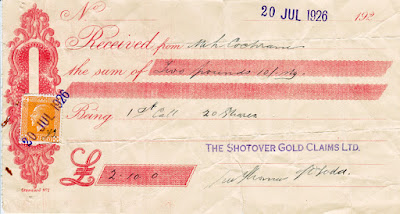 20 JUL 1926
No 192
Received from Mrk Cochrane
the sum of Two pounds 10/-
Being 1st Call 20 Shares
20 JUL 1926
THE SHOTOVER GOLD CLAIMS LTD.
£ 2-10-0